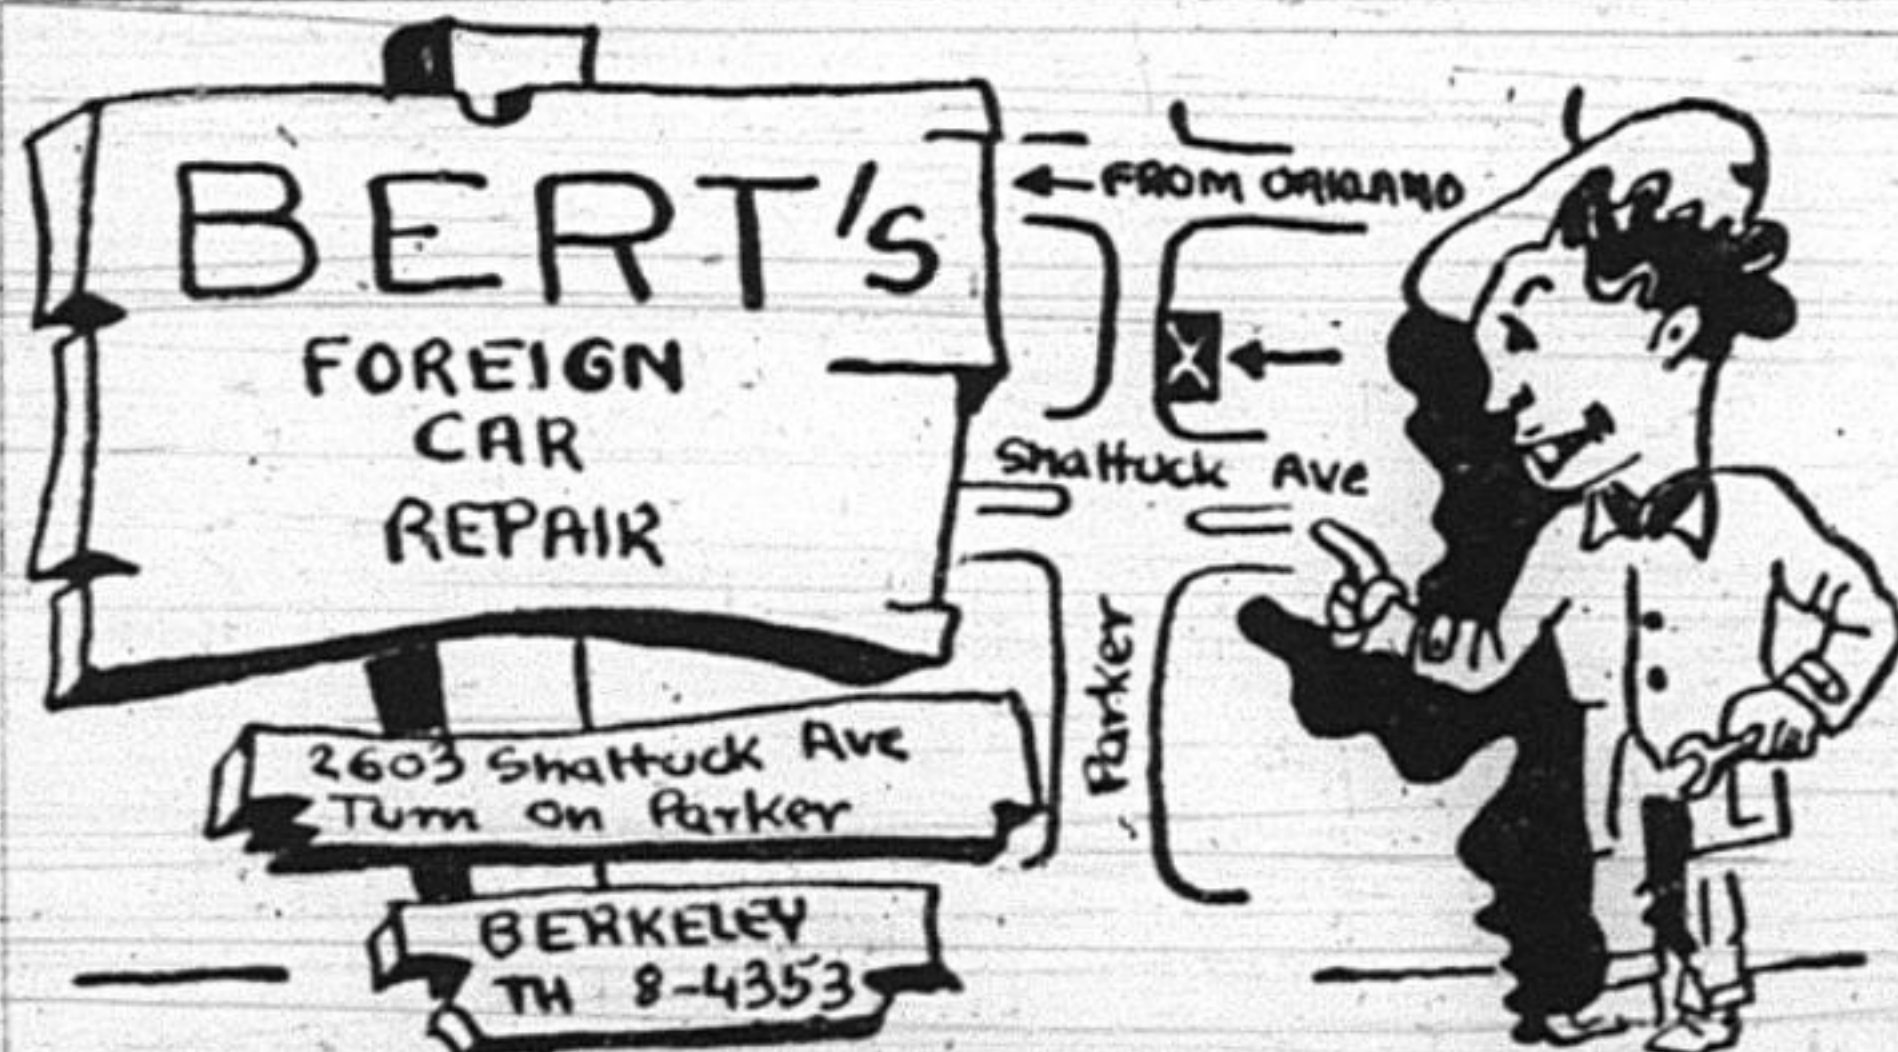 BERT'S
FOREIGN
CAR
REPAIR
2603 Shattuck Ave
Turn on Parker
BERKELEY
TH 8-4353
FROM OAKLAND
X
Shattuck Ave
Parker